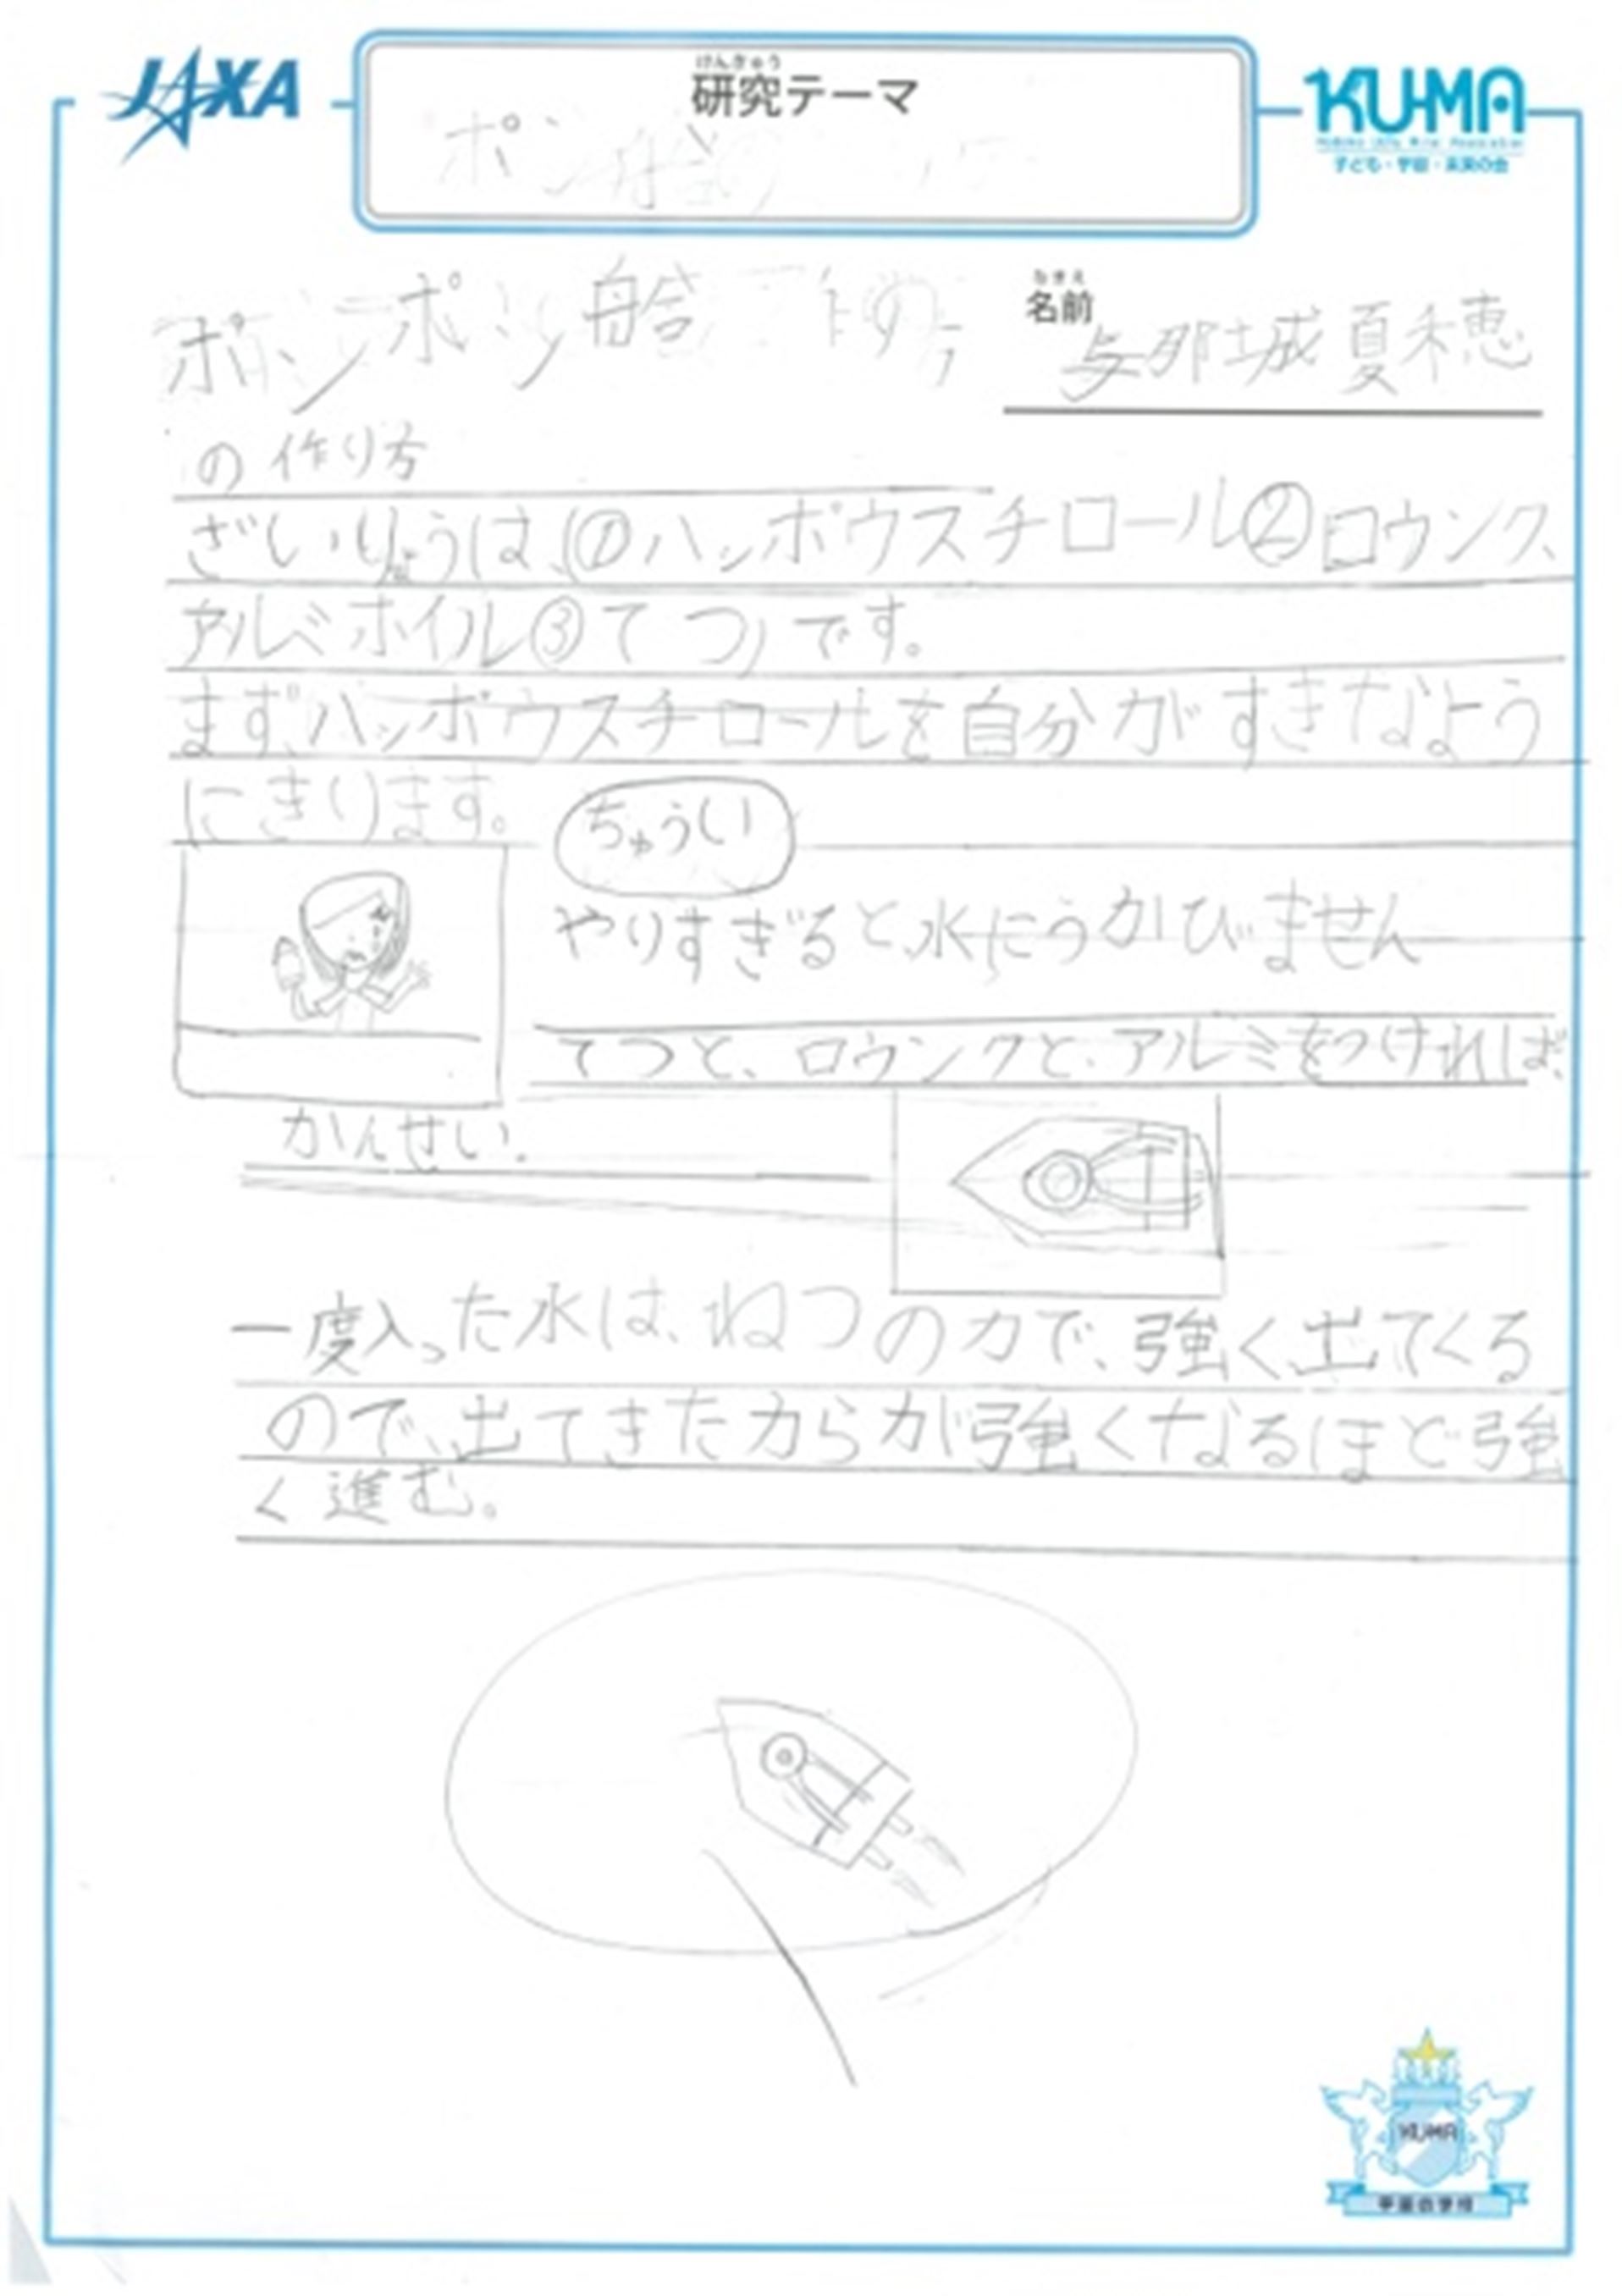 JAXA
けんきゅう
研究テーマ
KUMA
子ども・宇宙・未来の会
ポンポン船
なまえ
名前
与那城夏穂
の作り方
ざいりょうは、①ハッポウスチロール②ロウソク、
アルミホイル③てつ)です。
まず、ハッポウスチロールを自分がすきなよう
にきります。
ちゅうい
やりすぎると、水にうかびません
てつと、ロウソクと、アルミをつければ、
かんせい.
一度入った水は、ねつの力で、強く、出てくる
ので、出てきた力らが強くなるほど強
く進む。
KUMA
宇宙の学校